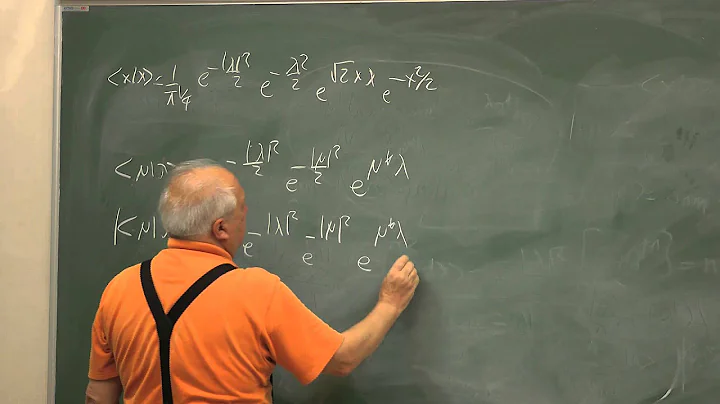 <x|λ> = 1/π^1/4 e^{-|λ|²/2} e^{-λ²/2} e^{√2 x λ} e^{-x²/2}
<μ|λ> - |λ|²/2 e^{-|μ|²/2} e^{μ*λ}
|<μ| e^{-|λ|²} e^{-|μ|²} e^{μ*λ}